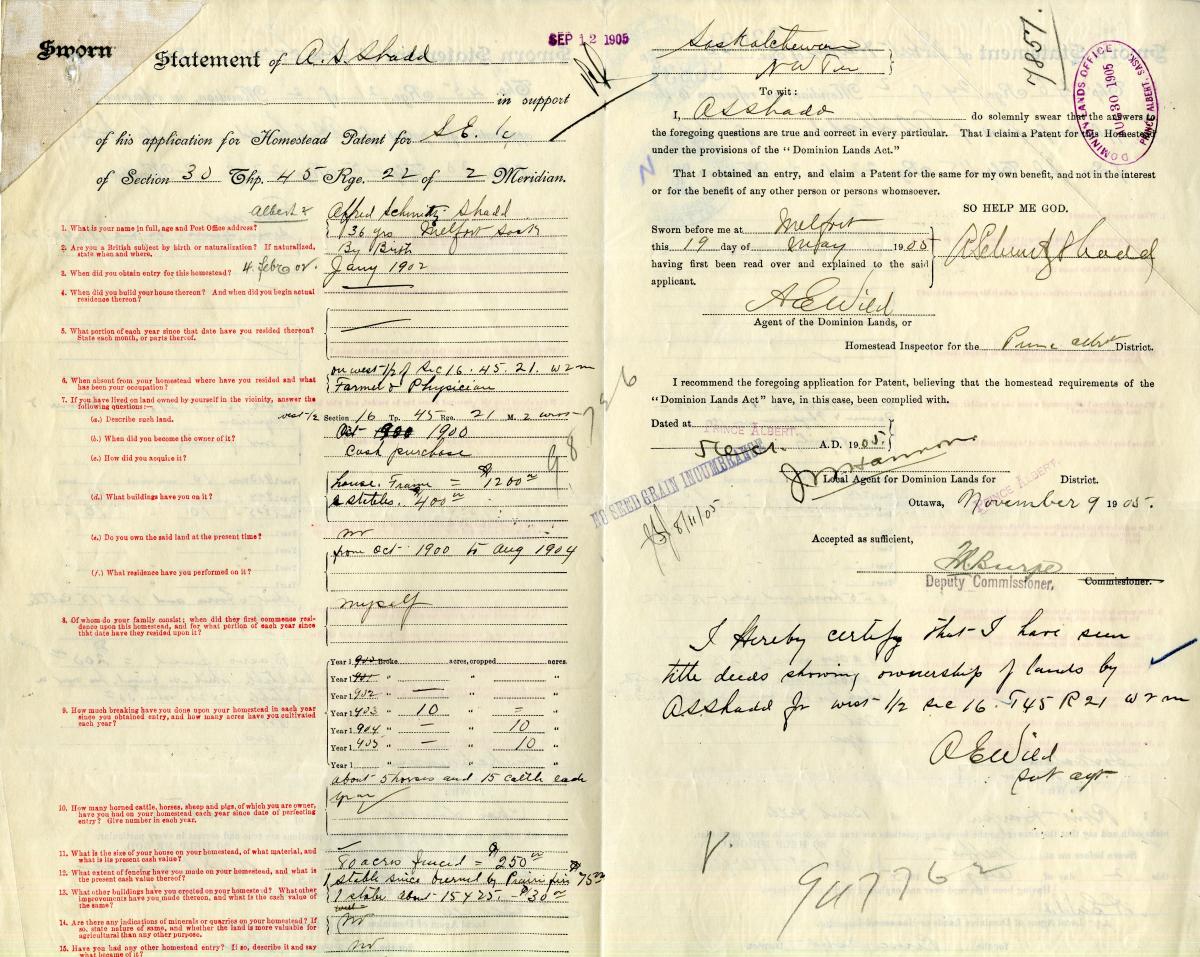 Sworn
Statement of A. S. Shadd
SEP 12 1905
in support
of his application for Homestead Patent for S.E. ¼
of Section 30 Thp. 45 Rge. 22 of 2 Meridian.
1. What is your name in full, age and Post Office address?
Alfred Schmitz Shadd
36 yrs Melfort Sask
2. Are you a British subject by birth or naturalization? If naturalized, state when and where.
By Birth
3. When did you obtain entry for this homestead?
4. Febr 02.
Jany 1902
4. When did you build your house thereon? And when did you begin actual residence thereon?
5. What portion of each year since that date have you resided thereon? State each month, or parts thereof.
6. When absent from your homestead where have you resided and what has been your occupation?
on west 1/2 of Sec 16. 45. 21. W 2 m
Farmer & Physician
7. If you have lived on land owned by yourself in the vicinity, answer the following questions:—
(a.) Describe such land.
west 1/2 Section 16 Tp. 45 Rge. 21 M. 2 west
(b.) When did you become the owner of it?
Oct 1900 1900
(c.) How did you acquire it?
Cash purchase
(d.) What buildings have you on it?
house. Frame = $1200
stables. $400
(e.) Do you own the said land at the present time?
(f.) What residence have you performed on it?
from Oct 1900 to Aug 1904
8. Of whom do your family consist; when did they first commence residence upon this homestead, and for what portion of each year since that date have they resided upon it?
myself
9. How much breaking have you done upon your homestead in each year since you obtained entry, and how many acres have you cultivated each year?
Year 1900 Broke acres, cropped acres.
Year 1901 " " "
Year 1902 " — " "
Year 1903 " 10 " = "
Year 1904 " = " 10 "
Year 1905 " — " 10 "
Year 1 " " "
10. How many horned cattle, horses, sheep and pigs, of which you are owner, have you had on your homestead each year since date of perfecting entry? Give number in each year.
about 5 horses and 15 cattle each
year
11. What is the size of your house on your homestead, of what material, and what is its present cash value?
12. What extent of fencing have you made on your homestead, and what is the present cash value thereof?
acres fenced = $250
13. What other buildings have you erected on your homestead? What other improvements have you made thereon, and what is the cash value of the same?
1 stable since burned by Prairie fire $75
1 stable about 15 x 25. - $30
14. Are there any indications of minerals or quarries on your homestead? If so, state nature of same, and whether the land is more valuable for agricultural than any other purpose.
15. Have you had any other homestead entry? If so, describe it and say what became of it?
Saskatchewan
N W Ter
To wit:
I, A S Shadd do solemnly swear that the answers to
the foregoing questions are true and correct in every particular. That I claim a Patent for this Homestead
under the provisions of the "Dominion Lands Act."
That I obtained an entry, and claim a Patent for the same for my own benefit, and not in the interest
or for the benefit of any other person or persons whomsoever.
SO HELP ME GOD.
Sworn before me at Melfort
this 19 day of May 1905
having first been read over and explained to the said
applicant.
A Schmitz Shadd
A E Wild
Agent of the Dominion Lands, or
Homestead Inspector for the Prince Albert District.
I recommend the foregoing application for Patent, believing that the homestead requirements of the
"Dominion Lands Act" have, in this case, been complied with.
Dated at PRINCE ALBERT.
A.D. 1905.
Local Agent for Dominion Lands for District.
PRINCE ALBERT.
NO SEED GRAIN INCUMBRANCE
8/11/05
Ottawa, November 9 1905.
Accepted as sufficient,
Deputy Commissioner.
Commissioner.
I Hereby certify that I have seen
title deeds showing ownership of lands by
A S Shadd Jr west 1/2 sec 16. T45 R 21 W 2 m
A E Wild
Sub agt
V.
DOMINION LANDS OFFICE
AUG 30 1905
PRINCE ALBERT, SASK.